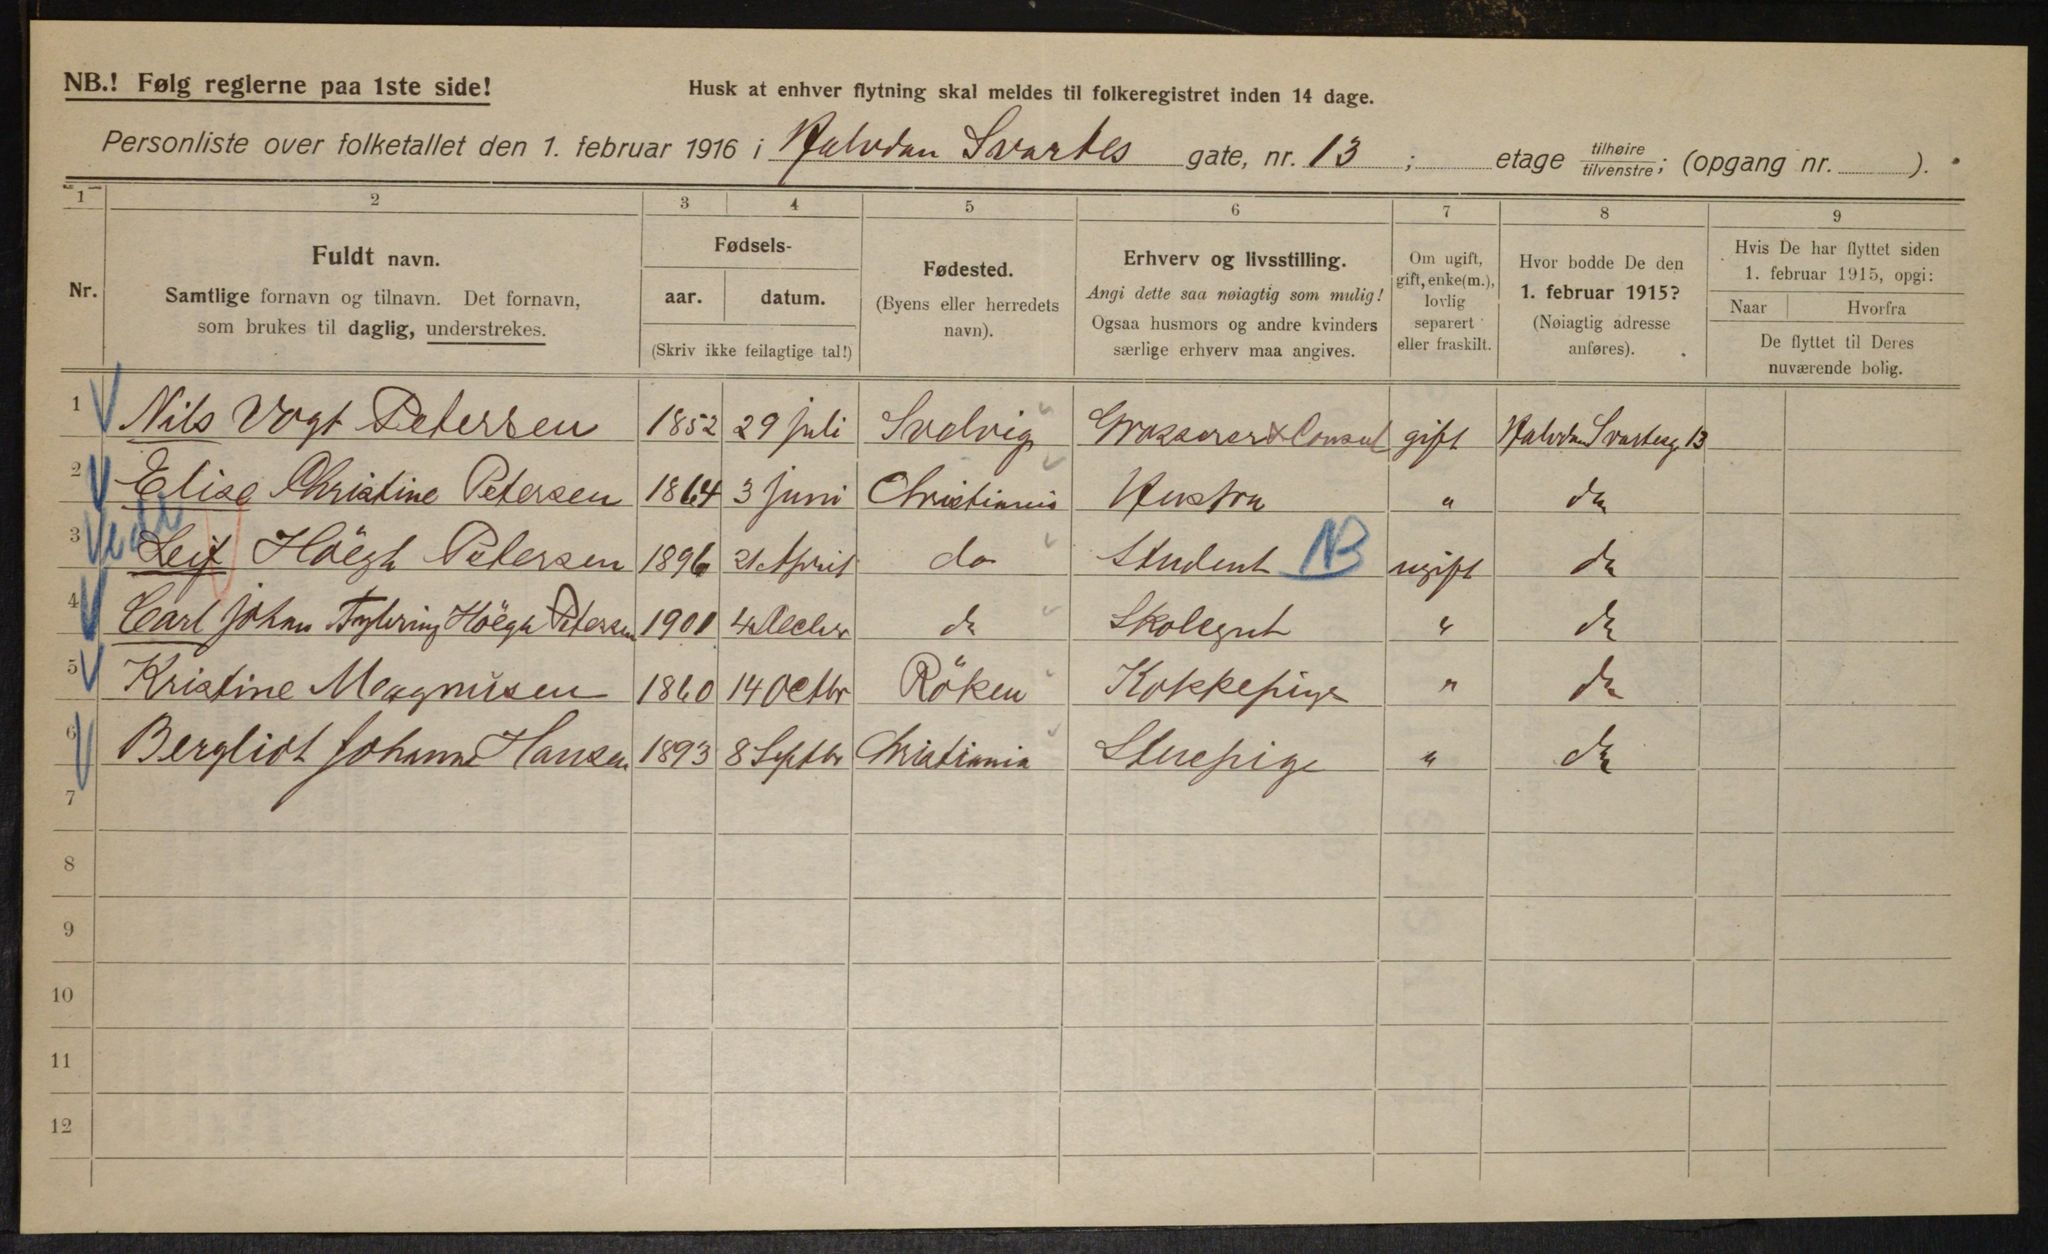 NB.! Følg reglerne paa 1ste side!
Husk at enhver flytning skal meldes til folkeregistret inden 14 dage.
Personliste over folketallet den 1. februar 1916 i Halvdan Svartes gate, nr. 13 ; etage tilhøire/tilvenstre; (opgang nr. ).
1 2 3 4 5 6 7 8 9
Nr.
Fuldt navn.
Samtlige fornavn og tilnavn. Det fornavn,
som brukes til daglig, understrekes.
Fødsels-
aar. datum.
(Skriv ikke feilagtige tal!)
Fødested.
(Byens eller herredets
navn).
Erhverv og livsstilling.
Angi dette saa nøiagtig som mulig!
Ogsaa husmors og andre kvinders
særlige erhverv maa angives.
Om ugift,
gift, enke(m.),
lovlig
separert
eller fraskilt.
Hvor bodde De den
1. februar 1915?
(Nøiagtig adresse
anføres).
Hvis De har flyttet siden
1. februar 1915, opgi:
Naar Hvorfra
De flyttet til Deres
nuværende bolig.
1 Nils Vogt Petersen 1852 29 juli Svelvig Grosserer & Consul gift Halvdan Svartesg. 13
2 Elise Christine Petersen 1864 3 juni Christiania Hustru " do
3 Leif Höegh Petersen 1896 21 April do Student NB ugift do
4 Carl Johan Höegh Petersen 1901 4 Decbr do Skolegut " do
5 Kristine Magnusen 1860 14 Octbr Röken Kokkepige " do
6 Bergliot Johanne Hansen 1893 8 Septbr Christiania Stuepige " do
7
8
9
10
11
12